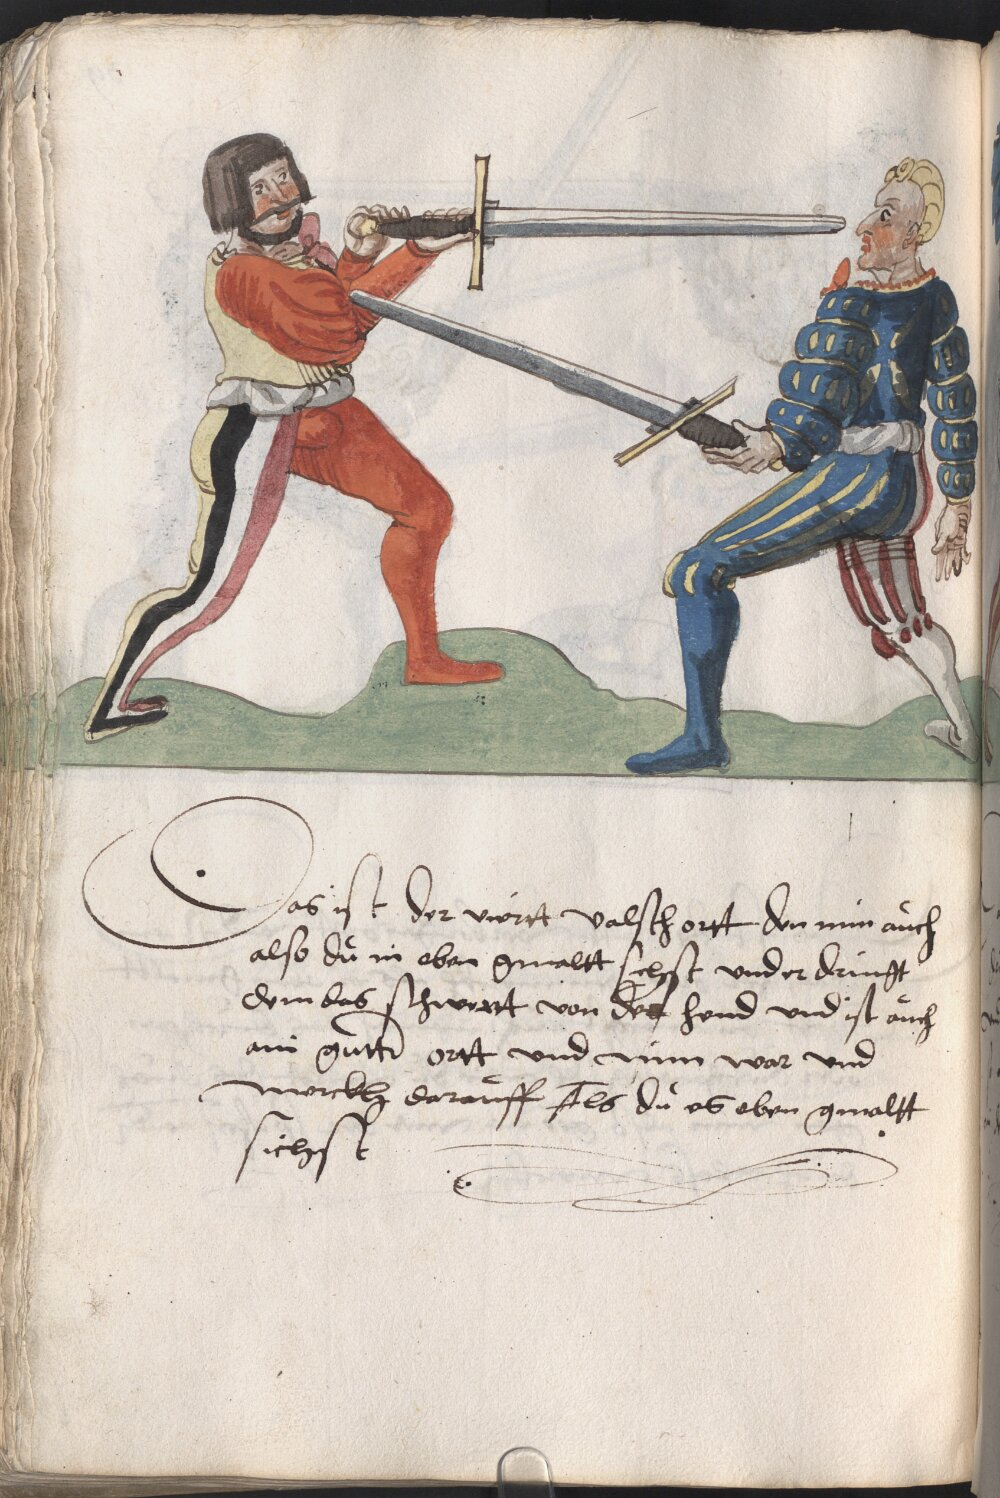 Das ist der viertt valsch ortt den nim aůch
also dů in eben gmaltt sichst und er dringt
dem das schwertt von der hend und ist aůch
ain gůtter ortt und nim war und
merckh daraůff Als dů es eben gmaltt
sichst